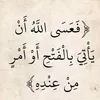 ﴿ فَعَسَى اللَّهُ أَنْ
يَأْتِيَ بِالْفَتْحِ أَوْ أَمْرٍ
مِنْ عِنْدِهِ ﴾